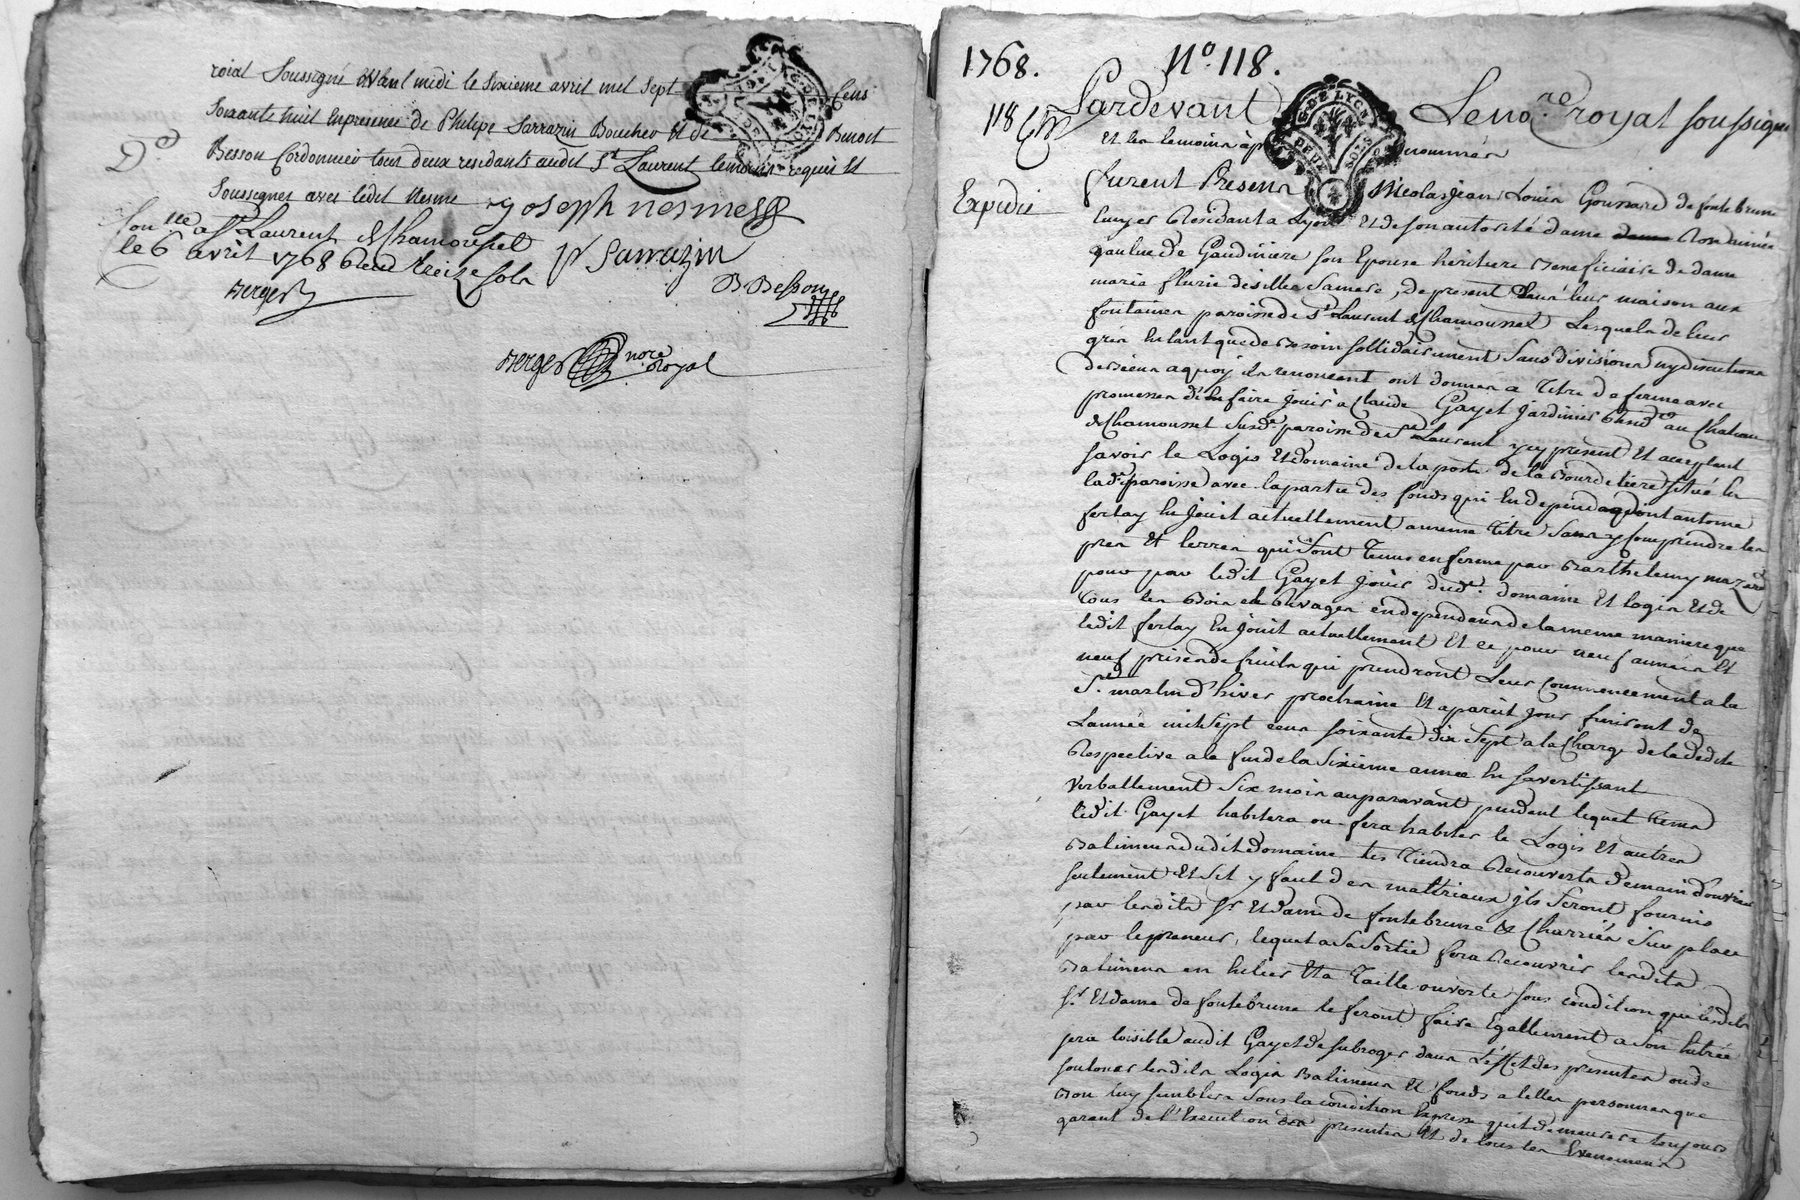 roial Soussigné avant midi le sixieme avril mil sept cens
Soixante huit En presence de Philipe Sarrazin Boucher Et de Benoit
Besson Cordonnier tous deux residants audit St Laurent temoins requis Et
Soussignes avec ledit Nesme joseph nesme
D.º
Con.lle a St Laurent de Chamousset
le 6 avril 1768 Reçu treize sols
p Sarrazin
B Besson
Berger
Berger nore Royal
1768. N.º 118.
118 Pardevant Le no.re royal soussigné
G. DE LYON
DEUX SOLS
Et les temoins nommés
Expedié
furent Presens Nicolas Jean Louis Goussard de fontebrune
Ecuyer Residant a Lyon Et de son autorité dame
de Gaudiniere son Epouse héritiere Beneficiaire de dame
marie fleurie desilles sa mere, de present dans leur maison aux
fontaines paroisse de St Laurent de Chamousset Lesquels de leur
gré En tant que de Besoin sollidairement Sans divisions ny discutions
desdieux a quoy ils renoncent ont donnés a Titre de ferme avec
promesses d'En faire Jouir à Claude Gayet Jardinier au Chateau
de Chamousset Susd.e paroisse de St Laurent yci present Et acceptant
savoir le Logis Et domaine de la poste de la Bourdeliere situé En
lad.e paroisse avec la partie des fonds qui En depend dont antoine
ferlay En Jouit actuellement a meme titre Sans y Comprendre les
pres Et terres qui sont tenus en ferme par Barthelemy mazard
pour par ledit Gayet Jouir dud.t domaine Et logis Et de
tous les Bois et Buvages en dependans de la meme maniere que
ledit ferlay En Jouit actuellement Et ce pour neuf années Et
neuf prises de fruits qui prendront Leur Commencement a la
St martin d'hiver prochaine Et a pareil Jour finiront de
L'année mil sept cens soixante dix sept a la Charge de la dedite
Respective a la fin de la sixieme année En s'avertissant
Verballement Six mois auparavant pendant lequel tems
ledit Gayet habitera ou fera habiter le Logis Et autres
Batimens dudit domaine les tiendra Recouverts de main d'ouvrier
seulement Et s'il y faut des matériaux ils seront fournis
par lesdits Sr Et dame de fontebrune Et Charriés sur place
par le preneur, lequel a sa Sortie fera Recouvrir lesdits
Batimens en Taille ouverte sous condition que lesdits
Sr Et dame de fontebrune le feront faire Egallement a son Entrée
sera loisible audit Gayet de subroger dans L'effet des presentes ou de
soutoner lesdits Logis Batimens Et fonds a telles personnes que
Bon luy semblera sous la condition Expresse qu'il demeurera toujours
garant de l'Execution des presentes Et de tous les Evenemens